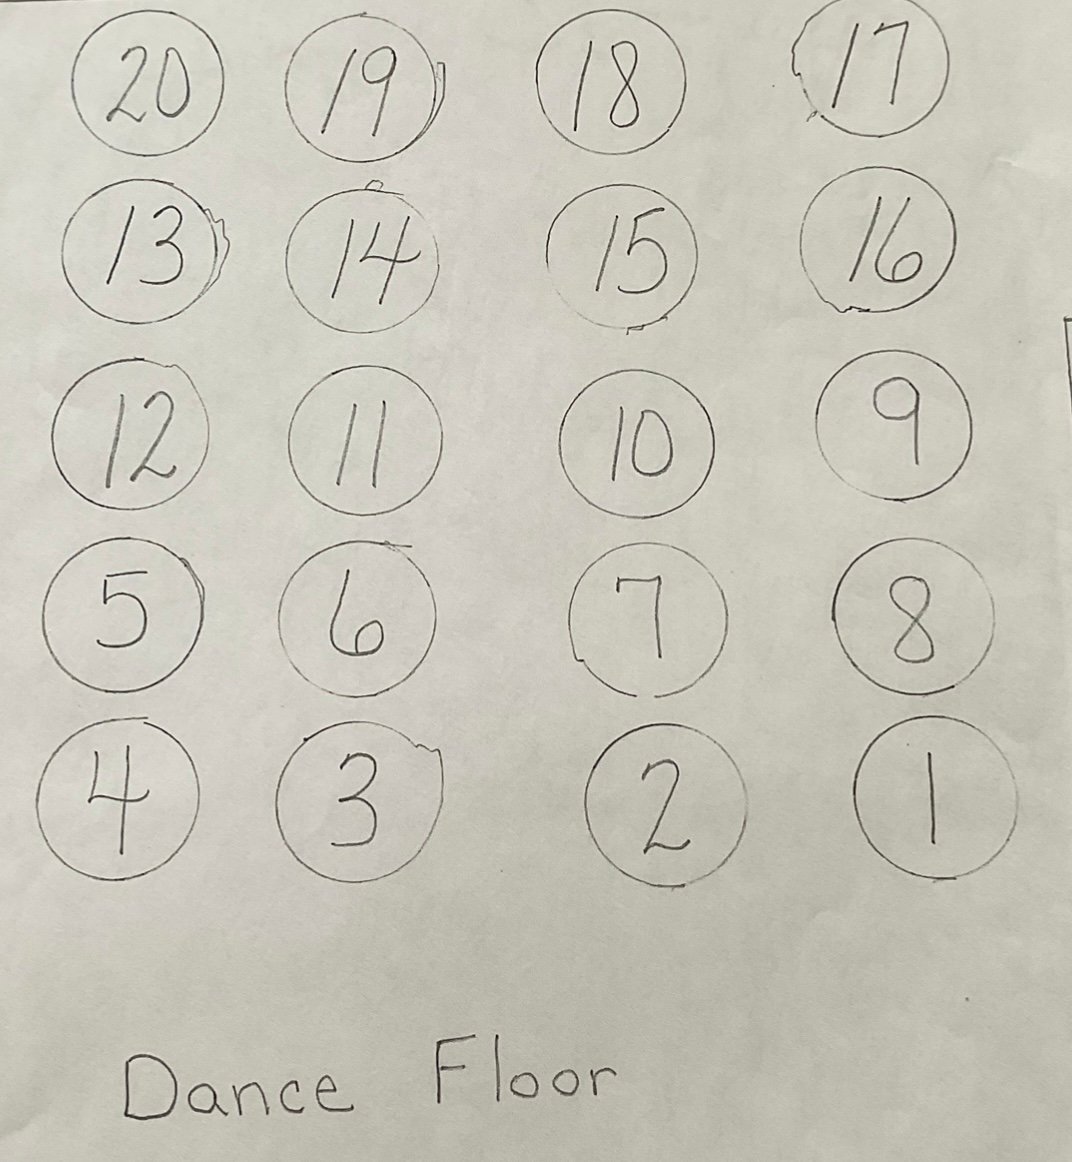 20 19 18 17
13 14 15 16
12 11 10 9
5 6 7 8
4 3 2 1
Dance Floor